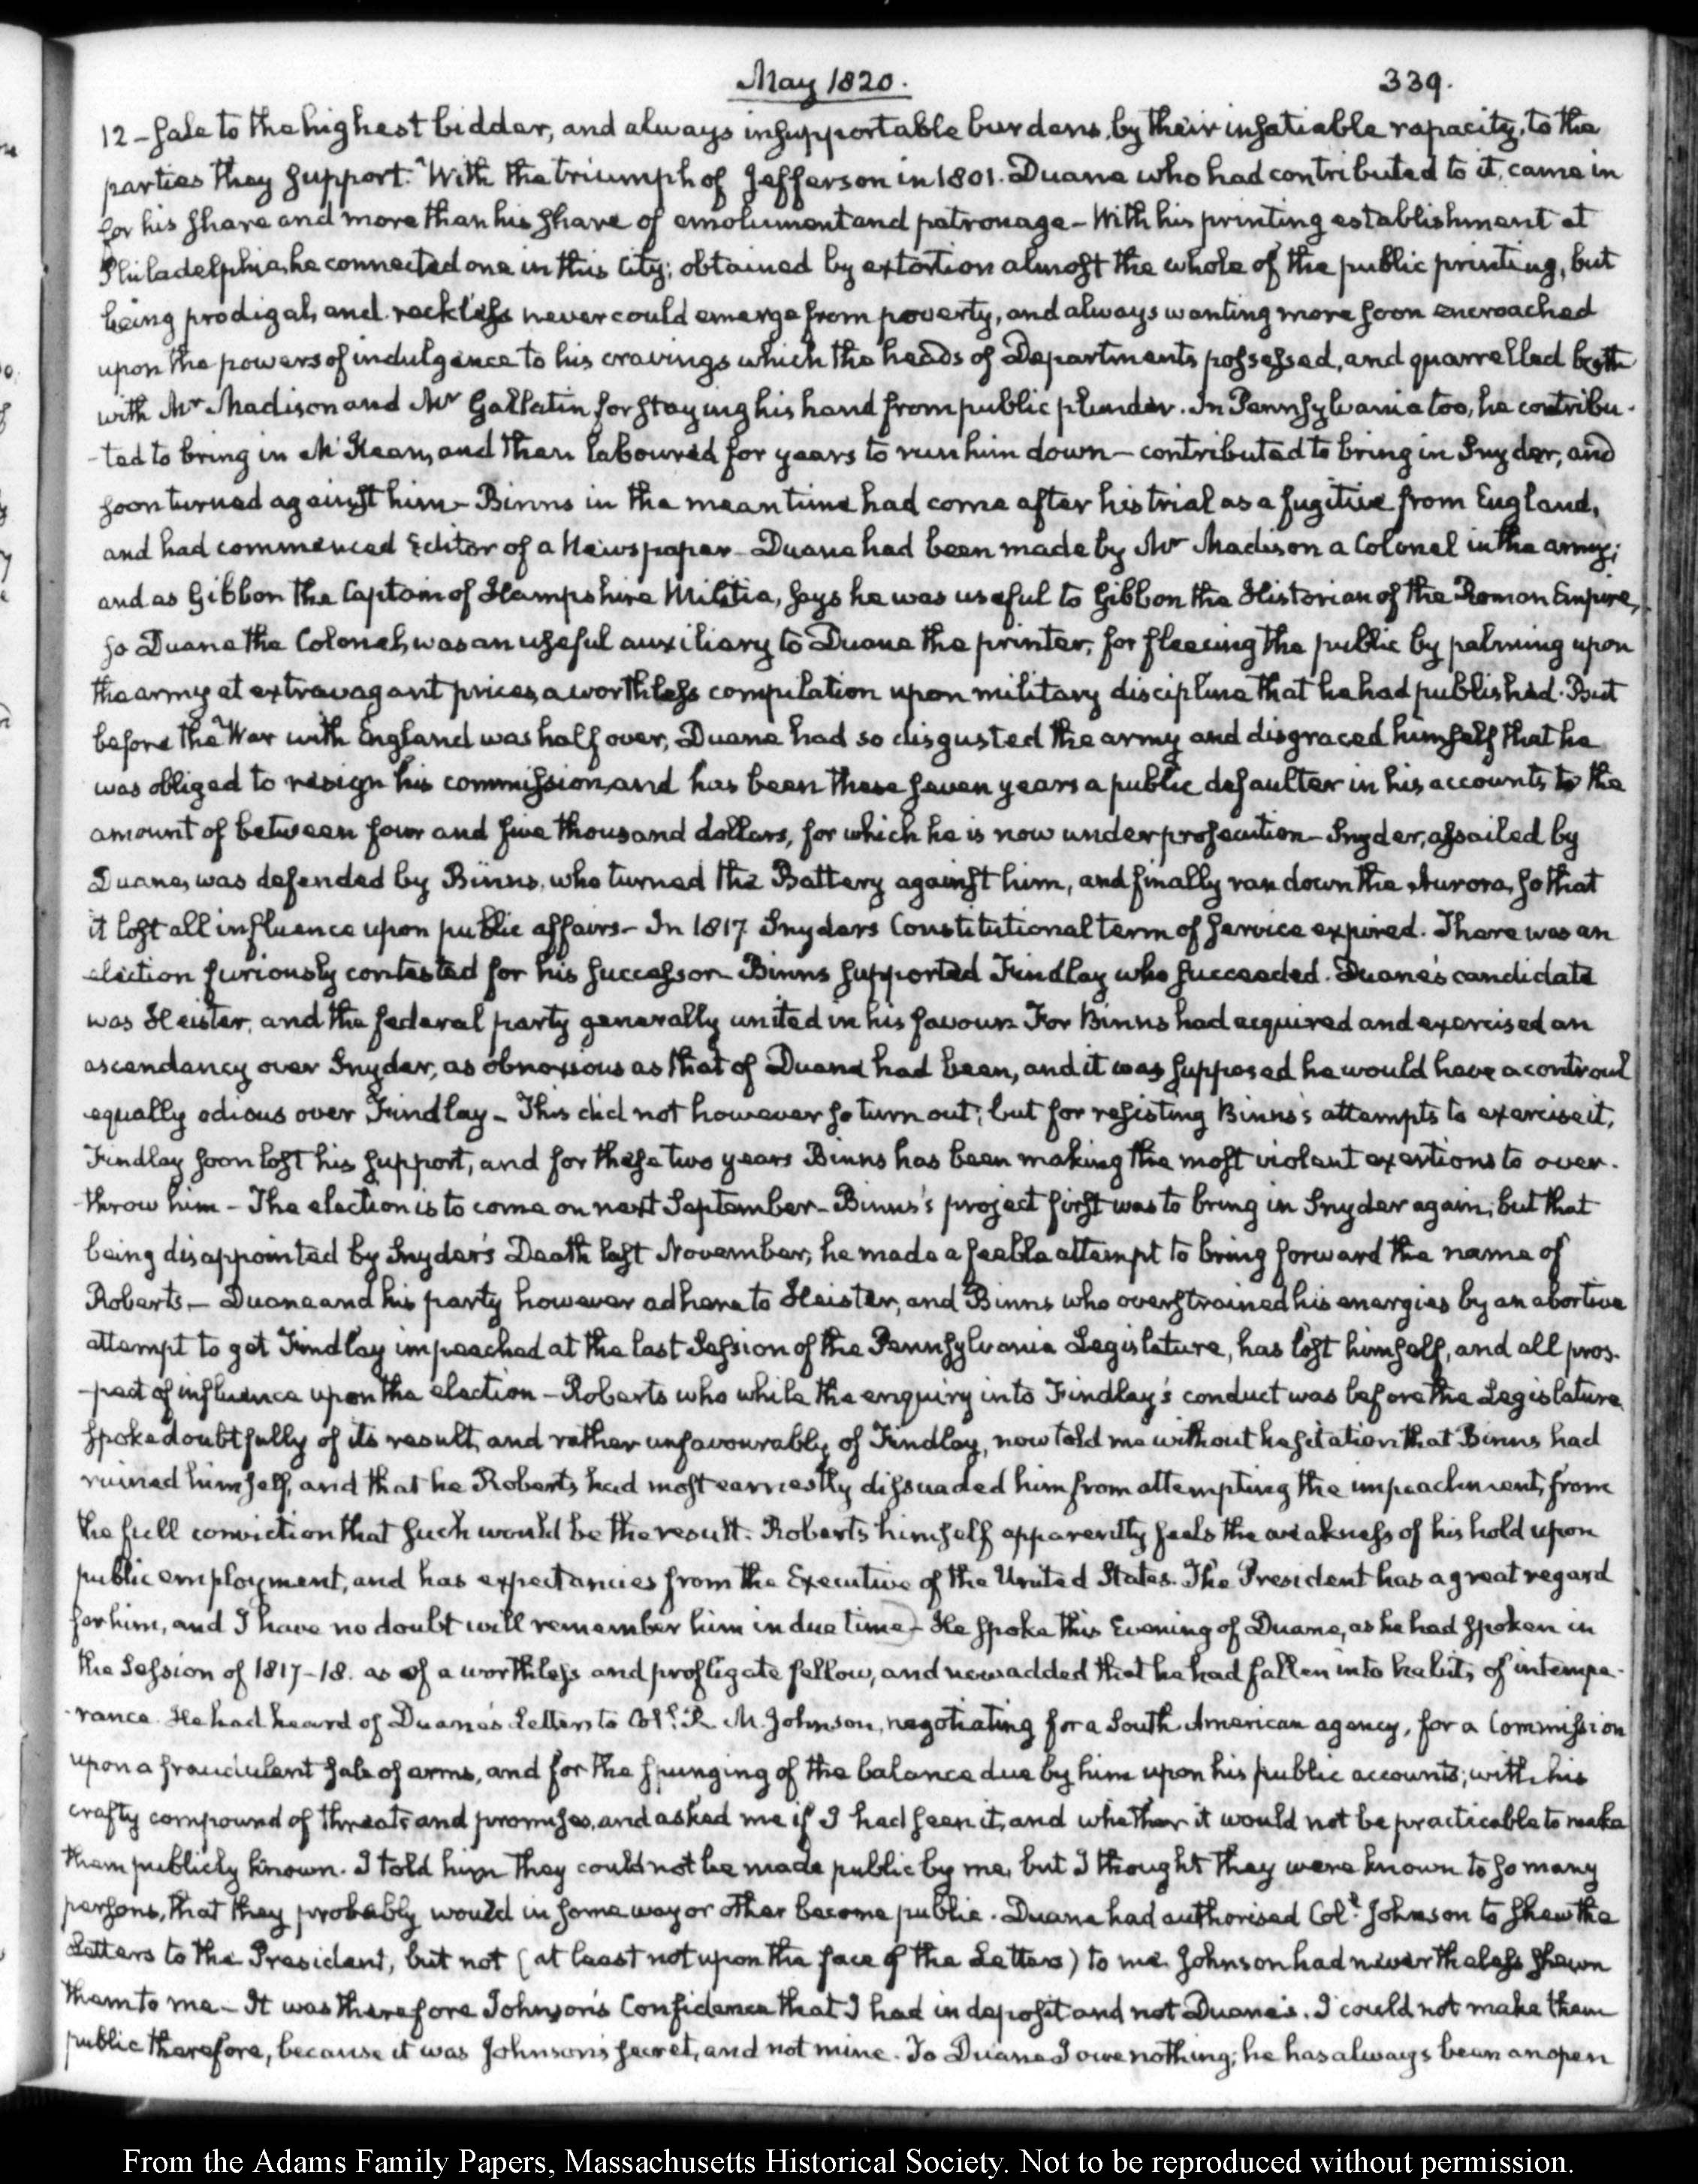 May 1820. 339.
12 – sale to the highest bidder, and always insupportable burdens, by their insatiable rapacity, to the
parties they support. With the triumph of Jefferson in 1801. Duane who had contributed to it, came in
for his share and more than his share of emolument and patronage – With his printing establishment at
Philadelphia, he connected one in this City; obtained by extortion almost the whole of the public printing, but
being prodigal, and reckless never could emerge from poverty, and always wanting more soon encroached
upon the powers of indulgence to his cravings which the heads of Departments possessed, and quarrelled both
with Mr Madison and Mr Gallatin for staying his hand from public plunder. In Pennsylvania too, he contribu-
-ted to bring in McKean, and then laboured for years to run him down – contributed to bring in Snyder, and
soon turned against him – Binns in the mean time had come after his trial as a fugitive from England,
and had commenced Editor of a Newspaper – Duane had been made by Mr Madison a Colonel in the army;
and as Gibbon the Captain of Hampshire Militia, says he was useful to Gibbon the Historian of the Roman Empire,
so Duane the Colonel, was an useful auxiliary to Duane the printer, for fleecing the public by palming upon
the army at extravagant prices, a worthless compilation upon military discipline that he had published. But
before the War with England was half over, Duane had so disgusted the army and disgraced himself that he
was obliged to resign his commission, and has been these seven years a public defaulter in his accounts to the
amount of between four and five thousand dollars, for which he is now under prosecution – Snyder, assailed by
Duane, was defended by Binns, who turned the Battery against him, and finally ran down the Aurora, so that
it lost all influence upon public affairs – In 1817 Snyder's Constitutional term of service expired. There was an
election furiously contested for his successor – Binns supported Findlay who succeeded. Duane's candidate
was Heister, and the federal party generally united in his favour. For Binns had acquired and exercised an
ascendancy over Snyder, as obnoxious as that of Duane had been, and it was supposed he would have a controul
equally odious over Findlay – This did not however so turn out; but for resisting Binns's attempts to exercise it,
Findlay soon lost his support, and for these two years Binns has been making the most violent exertions to over-
-throw him – The election is to come on next September – Binns's project first was to bring in Snyder again; but that
being disappointed by Snyder's Death last November, he made a feeble attempt to bring forward the name of
Roberts – Duane and his party however adhere to Heister, and Binns who overstrained his energies by an abortive
attempt to get Findlay impeached at the last Session of the Pennsylvania Legislature, has lost himself, and all pros-
-pect of influence upon the election – Roberts who while the enquiry into Findlay's conduct was before the Legislature
spoke doubtfully of its result, and rather unfavourably of Findlay, now told me without hesitation that Binns had
ruined himself, and that he Roberts, had most earnestly dissuaded him from attempting the impeachment, from
the full conviction that such would be the result. Roberts himself apparently feels the weakness of his hold upon
public employment, and has expectancies from the Executive of the United States. The President has a great regard
for him, and I have no doubt will remember him in due time – He spoke this Evening of Duane, as he had spoken in
the Session of 1817–18. as of a worthless and profligate fellow, and now added that he had fallen into habits of intempe-
-rance. He had heard of Duane's Letters to Coll. R. M. Johnson, negotiating for a South American agency, for a Commission
upon a fraudulent sale of arms, and for the spunging of the balance due by him upon his public accounts; with his
crafty compound of threats and promises, and asked me if I had seen it, and whether it would not be practicable to make
them publicly known. I told him they could not be made public by me, but I thought they were known to so many
persons, that they probably would in some way or other become public. Duane had authorised Coll. Johnson to shew the
Letters to the President, but not (at least not upon the face of the Letters) to me. Johnson had nevertheless shewn
them to me – It was therefore Johnson's Confidence that I had in deposit and not Duane's. I could not make them
public therefore, because it was Johnson's secret, and not mine. To Duane I owe nothing; he has always been an open
From the Adams Family Papers, Massachusetts Historical Society. Not to be reproduced without permission.